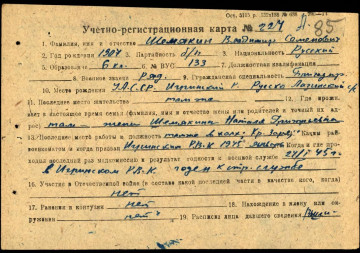 Учетно-регистрационная карта № 224
85
1. Фамилия, имя и отчество Шемакин Владимир Семенович
2. Год рождения 1904 3. Партийность б/п 4. Национальность Русский
5. Образование 6 кл. 6. № ВУС 133 7. Должностная квалификация
8. Воинское звание Ряд. 9. Гражданская специальность
10. Место рождения У.А.С.С.Р. Игринский р.
11. Последнее место жительства там же
12. В настоящее время семья (фамилия, имя и отчество жены или родителей и точный их
адрес) там жена Шемакина Наталья
13. Последнее место работы и должность 14. Каким рай-
военкоматом и когда призван РВК 1941 15. Когда и где про-
ходил последний раз медкомиссию и результат годности к военной службе 24/I 45 г.
в Игринском Р.В.К. годен к стр. службе
16. Участие в Отечественной войне (в составе какой последней части в качестве кого, когда)
нет
17. Ранения и контузия нет 18. Нахождение в плену или ок-
ружении нет 19. Расписка лица давшего сведения